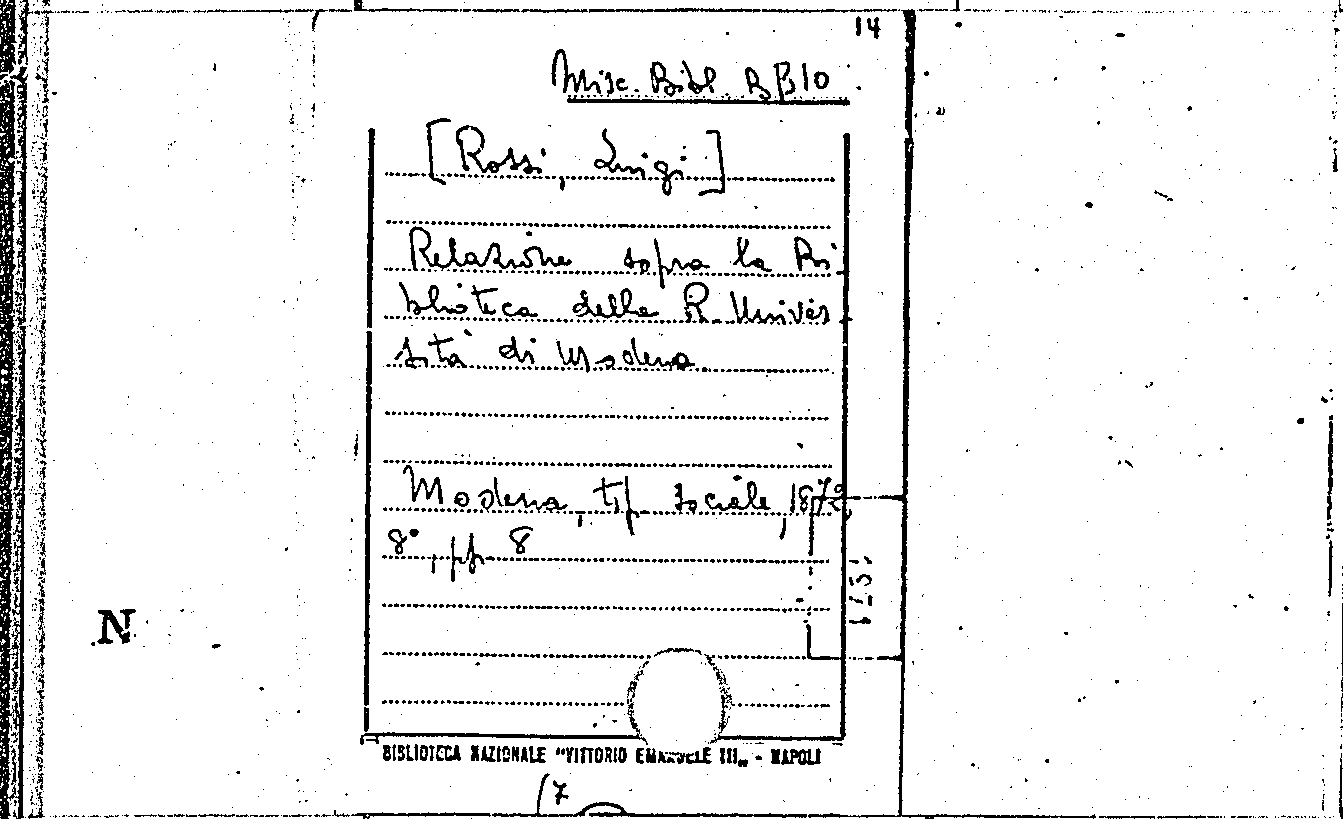 14
Misc. Bibl. B β 10
[Rossi, Luigi]
Relazione sopra la Bi
blioteca della R. Univer
sità di Modena.
Modena, tip. sociale, 1872,
8°, pp. 8
N
BIBLIOTECA NAZIONALE "VITTORIO EMANUELE III„ - NAPOLI